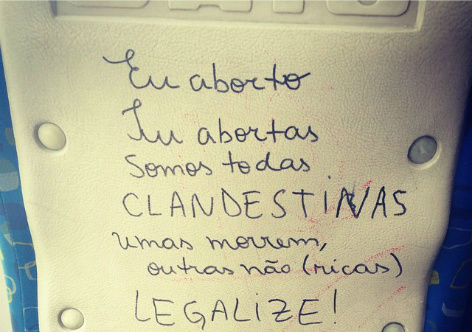 Eu aborto
Tu abortas
Somos todas
CLANDESTINAS
umas morrem,
outras não (ricas)
LEGALIZE!